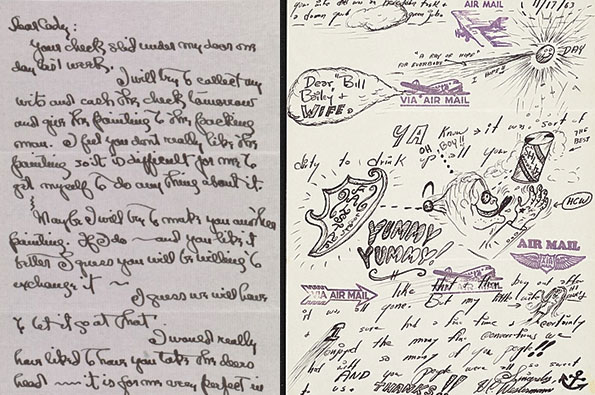 Dear Cady:
Your check slid under my door one
day last week.
I will try to collect my
wits and cash the check tomorrow
and give the painting to the packing
man. I feel you don't really like the
painting so it is difficult for me to
get myself to do any thing about it.
Maybe I will try to make you another
painting. If I do — and you like it
better I guess you will be willing to
exchange it ~
I guess we will have
to let it go at that.
I would really
have liked to have you take the deers
head — it is for me very perfect in
11/17/63
AIR MAIL
"A RAY OF HOPE"
FOR EVERYBODY
I HOPE!
DAY
Dear, "Bill
Bailey +
WIFE"
VIA AIR MAIL
YA Know it was sort of
OH BOY!!
THE BEST
dirty to drink up all your
HCW
YUMMY
YUMMY!
AIR MAIL
VIA AIR MAIL
like
it was all gone. But my little
I sure had a fine time + certainly
enjoyed the many fine conversations we
had with so many of you people!!
AND you people were all so sweet
to us. THANKS!! Sincerely,
H.C. Westermann